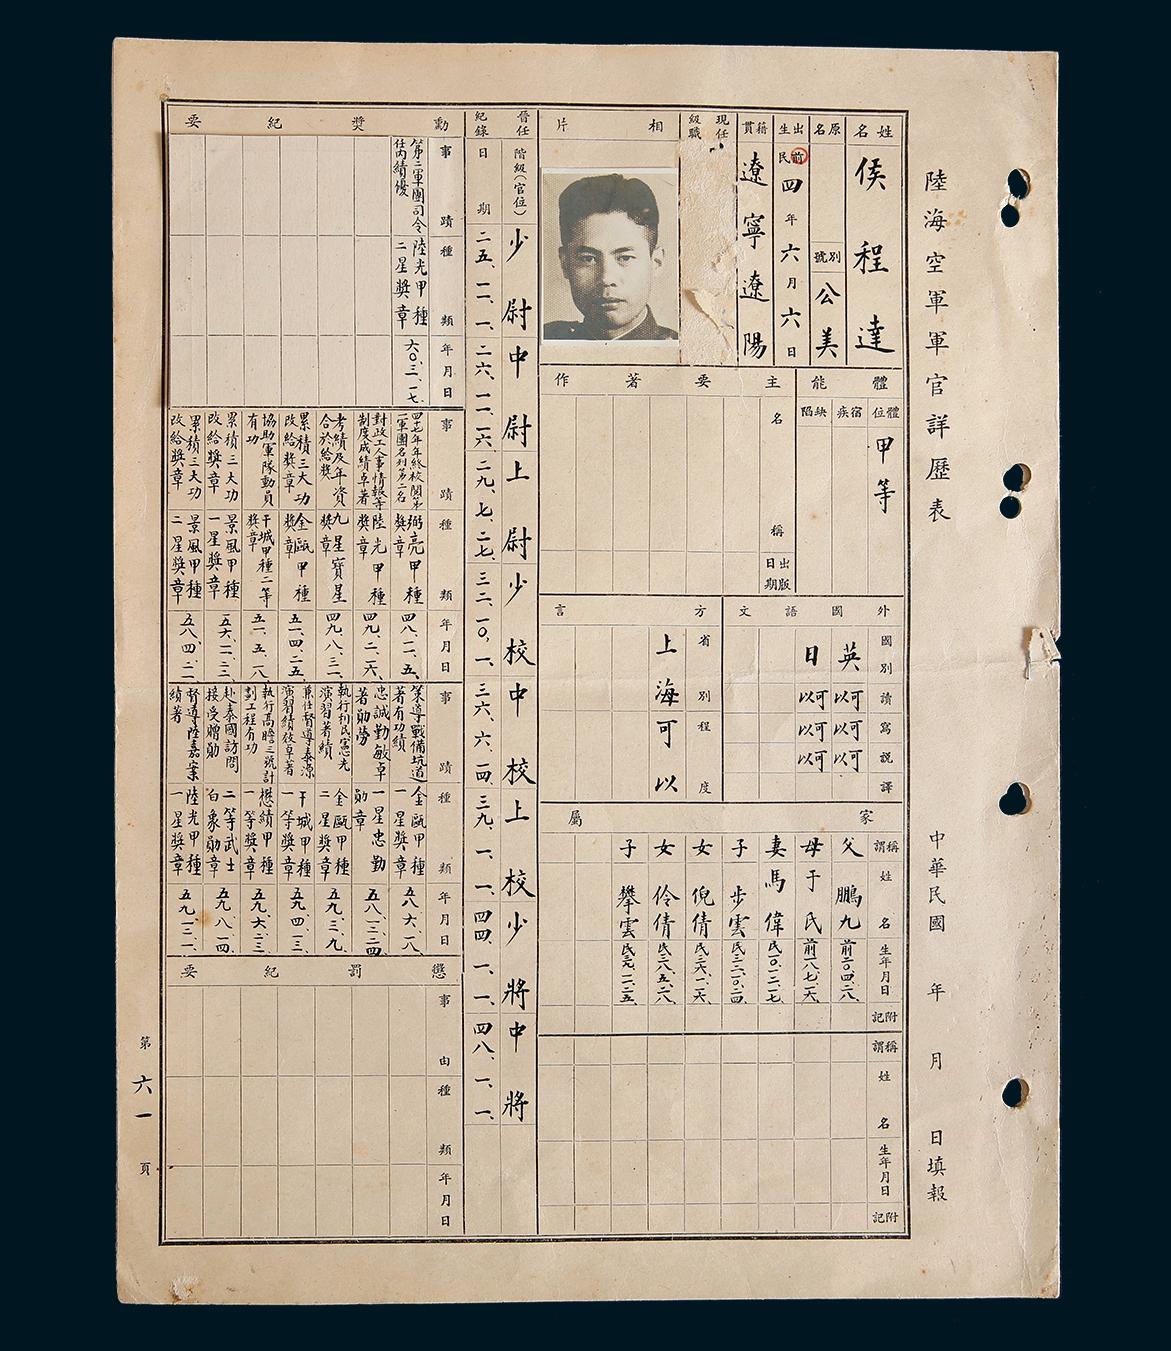 陸海空軍軍官詳歷表
中華民國 年 月 日填報
姓名
侯程達
原名
別號
公美
出生
民前四年六月六日
籍貫
遼寧遼陽
現任級職
相片
體能
體位
甲等
宿疾
缺陷
主要著作
名稱
出版日期
外國語文
國別 讀 寫 說 譯
英 可以 可以 可以
日 可以 可以 可以
方言
省別 程度
上海 可以
家屬
稱謂 姓名 生年月日 附記
父 鵬九 前二〇、四、二八、
母 于氏 前一八、七、二六、
妻 馬偉 民一〇、一二、一七、
子 步雲 民三二、一〇、二四、
女 倪倩 民三六、一、二六、
女 伶倩 民三八、五、二八、
子 攀雲 民三九、一二、二五、
稱謂 姓名 生年月日 附記
晉任紀錄
階級(官位) 日期
少尉 二五、一二、一、
中尉 二六、一二、一六、
上尉 二九、七、二七、
少校 三二、一〇、一、
中校 三六、六、一四、
上校 三九、一、一、
少將 四四、一、一、
中將 四八、一、一、
勳獎紀要
事蹟 種類 年月日
第二軍團司令任內績優 陸光甲種二星獎章 六〇、三、一七、
事蹟 種類 年月日
四十七年年終校閱第二軍團名列第二名 弼亮甲種獎章 四八、一、五、
對政工人事情報等制度成績卓著 陸光甲種獎章 四九、二、一六、
考績及年資合於給獎 九星寶星獎章 四九、八、三一、
累積三大功改給獎章 金甌甲種獎章 五一、四、二五、
協助軍隊動員有功 干城甲種二等獎章 五一、五、一八、
累積三大功改給獎章 景風甲種一星獎章 五六、二、二三、
累積三大功改給獎章 景風甲種二星獎章 五八、四、二一、
事蹟 種類 年月日
策導戰備坑道著有功績 金甌甲種一星獎章 五八、六、一八、
忠誠勤敏卓著勛勞 一星忠勤勛章 五八、一二、二四、
執行利民憲光演習著績 金甌甲種二星獎章 五九、三、九、
兼任督導泰源演習績效卓著 干城甲種一等獎章 五九、四、一三、
執行高瞻三號計劃工程有功 懋績甲種一等獎章 五九、六、二三、
赴泰國訪問接受贈勛 二等武士白象勛章 五九、八、一四、
督導陸嘉案績著 陸光甲種一星獎章 五九、一二、一、
懲罰紀要
事由 種類 年月日
第六一頁